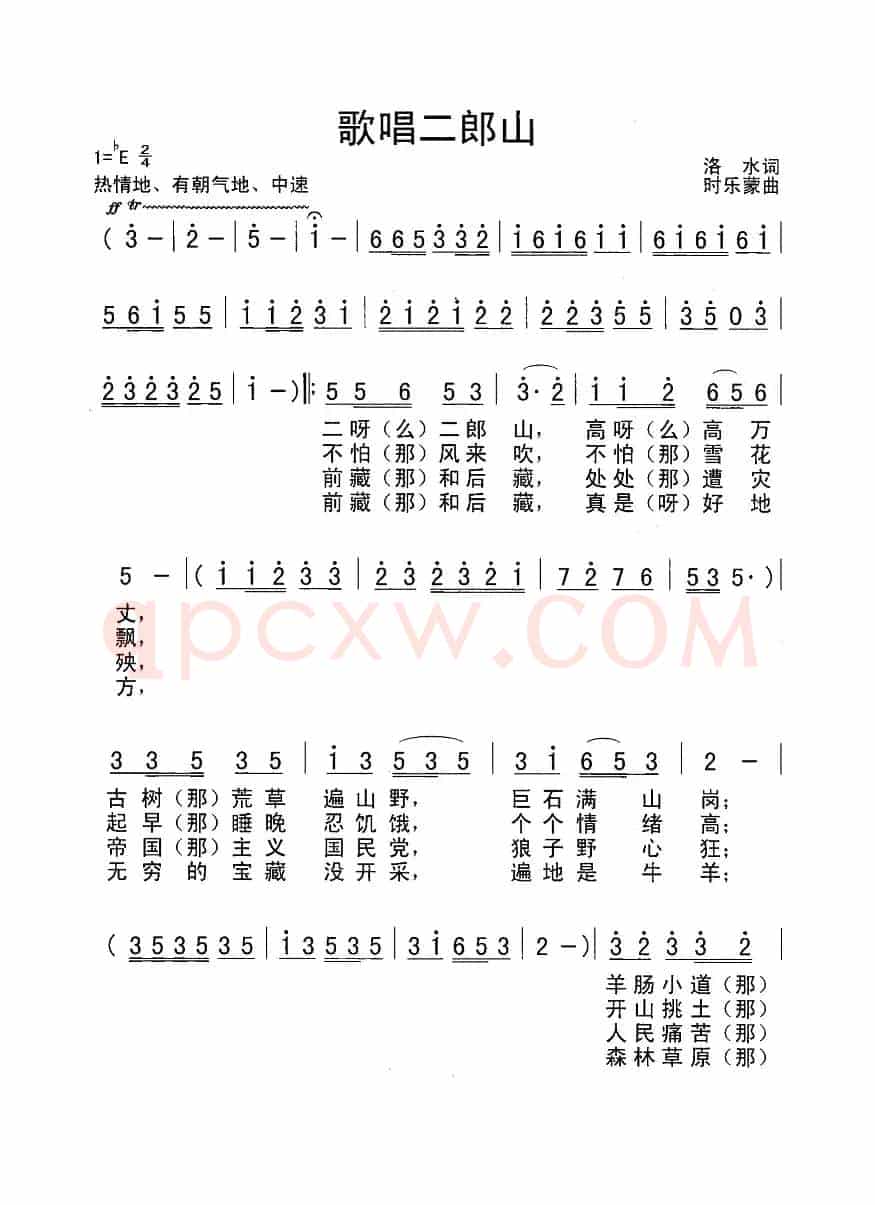 歌唱二郎山
1=♭E 2/4
洛 水词
热情地、有朝气地、中速
时乐蒙曲
ff tr
( 3̇ – | 2̇ – | 5̇ – | i̇ – | 6 6 5 3̇ 3̇ 2̇ | i̇ 6 i̇ 6 i̇ i̇ | 6 i̇ 6 i̇ 6 i̇ |
5 6 i̇ 5 5 | i̇ i̇ 2̇ 3̇ i̇ | 2̇ i̇ 2̇ i̇ 2̇ 2̇ | 2̇ 2̇ 3̇ 5̇ 5̇ | 3̇ 5̇ 0 3̇ |
2̇ 3̇ 2̇ 3̇ 2̇ 5 | i̇ – ) ‖: 5 5 6 5 3 | 3̇· 2̇ | i̇ i̇ 2̇ 6 5 6 |
二呀（么）二郎 山， 高呀（么）高 万
不怕（那）风来 吹， 不怕（那）雪 花
前藏（那）和后 藏， 处处（那）遭 灾
前藏（那）和后 藏， 真是（呀）好 地
5 – | ( i̇ i̇ 2̇ 3̇ 3̇ | 2̇ 3̇ 2̇ 3̇ 2̇ i̇ | 7 2̇ 7 6 | 5 3 5 · ) |
丈，
飘，
殃，
方，
qpcxw.COM
3 3 5 3 5 | i̇ 3 5 3 5 | 3 i̇ 6 5 3 | 2 – |
古树（那）荒草 遍山野， 巨石满 山 岗；
起早（那）睡晚 忍饥饿， 个个情 绪 高；
帝国（那）主义 国民党， 狼子野 心 狂；
无穷 的 宝藏 没开采， 遍地是 牛 羊；
( 3 5 3 5 3 5 | i̇ 3 5 3 5 | 3 i̇ 6 5 3 | 2 – ) | 3̇ 2̇ 3̇ 3̇ 2̇ |
羊肠小道（那）
开山挑土（那）
人民痛苦（那）
森林草原（那）